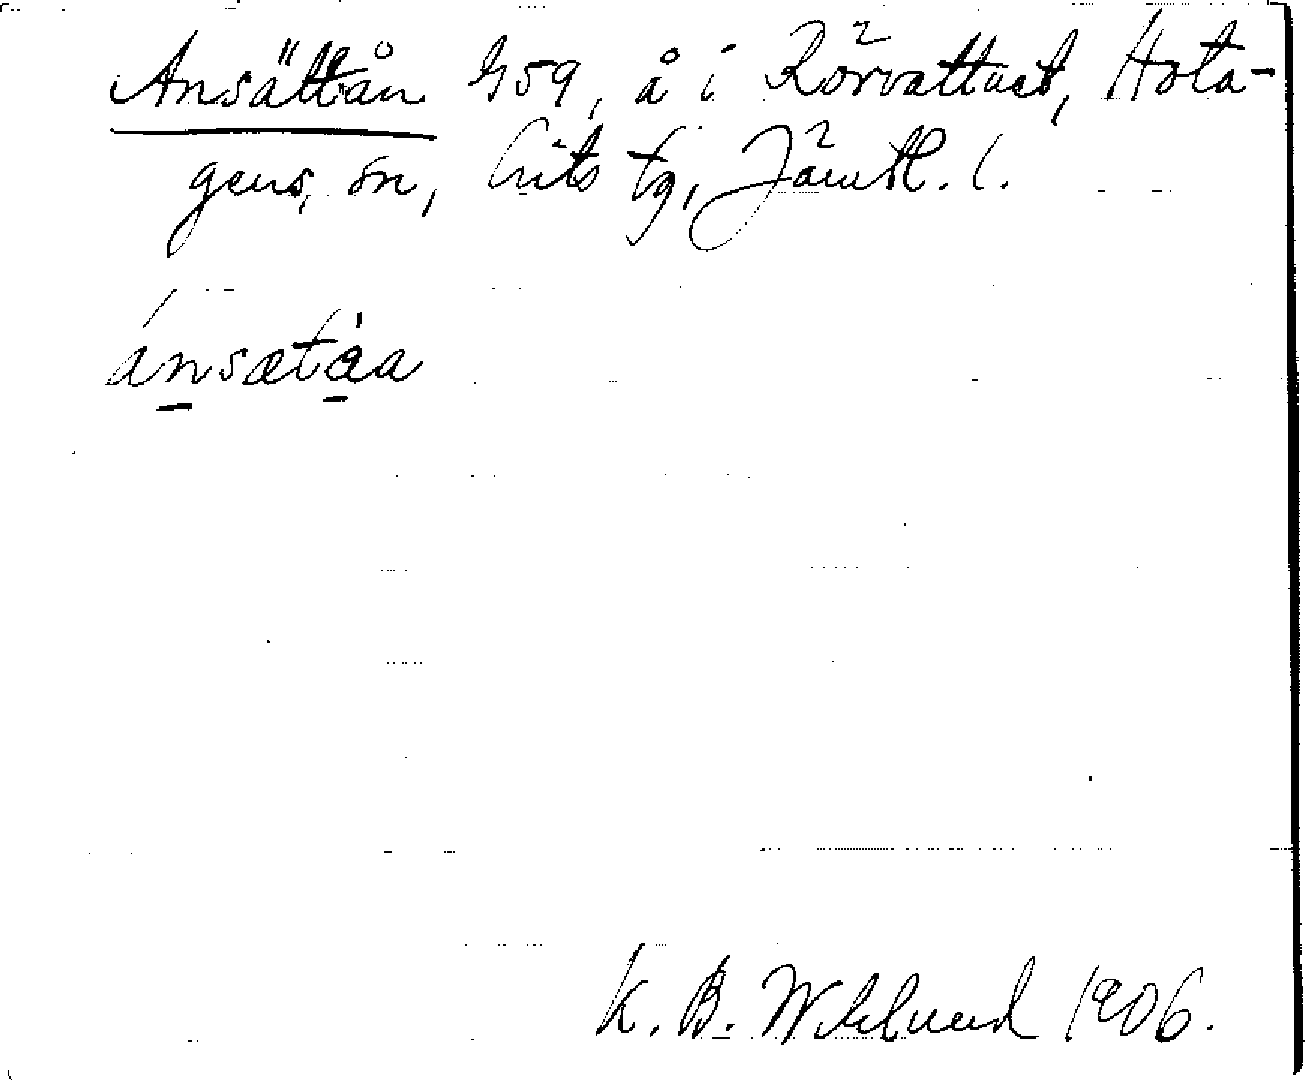 Ansättån G59, å i Rörvattnet, Hota-
gens sn, Lits tg, Jämtl. l.
ánsætåa
K. B. Wiklund 1906.